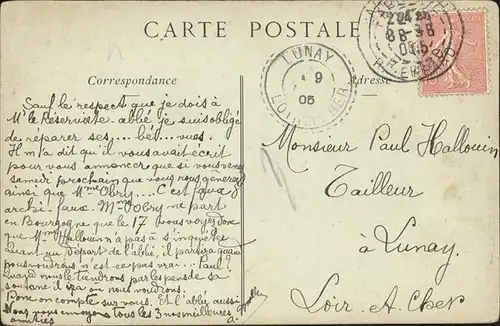 CARTE POSTALE
Correspondance
Adresse
LUNAY
9
05
LOIR-ET-CHER
Sauf le respect que je dois à
Mr le Réserviste-abbé je suis obligé
de réparer ses... bé... vues.
Il m'a dit qu'il vous avait écrit
pour vous annoncer que si vous venez
samedi prochain que vous nous
ainsi que Mme Obry.... C'est faux,
archi-faux. Mme Obry ne part
en Bourgogne que le 17 vous voyez donc
que Mme Hallouin n'a pas à s'inquiéter
quant au départ de l'abbé, il partira quand
nous voudrons n'est-ce pas vrai... Paul!
Quand nous le tiendrons par les pans de sa
soutane il ira où nous voudrons.
Donc on compte sur vous. Et l'abbé aussi
Nous vous envoyons tous les 3 nos meilleures
amitiés
Monsieur Paul Hallouin
Tailleur
à Lunay.
Loir-A-Cher